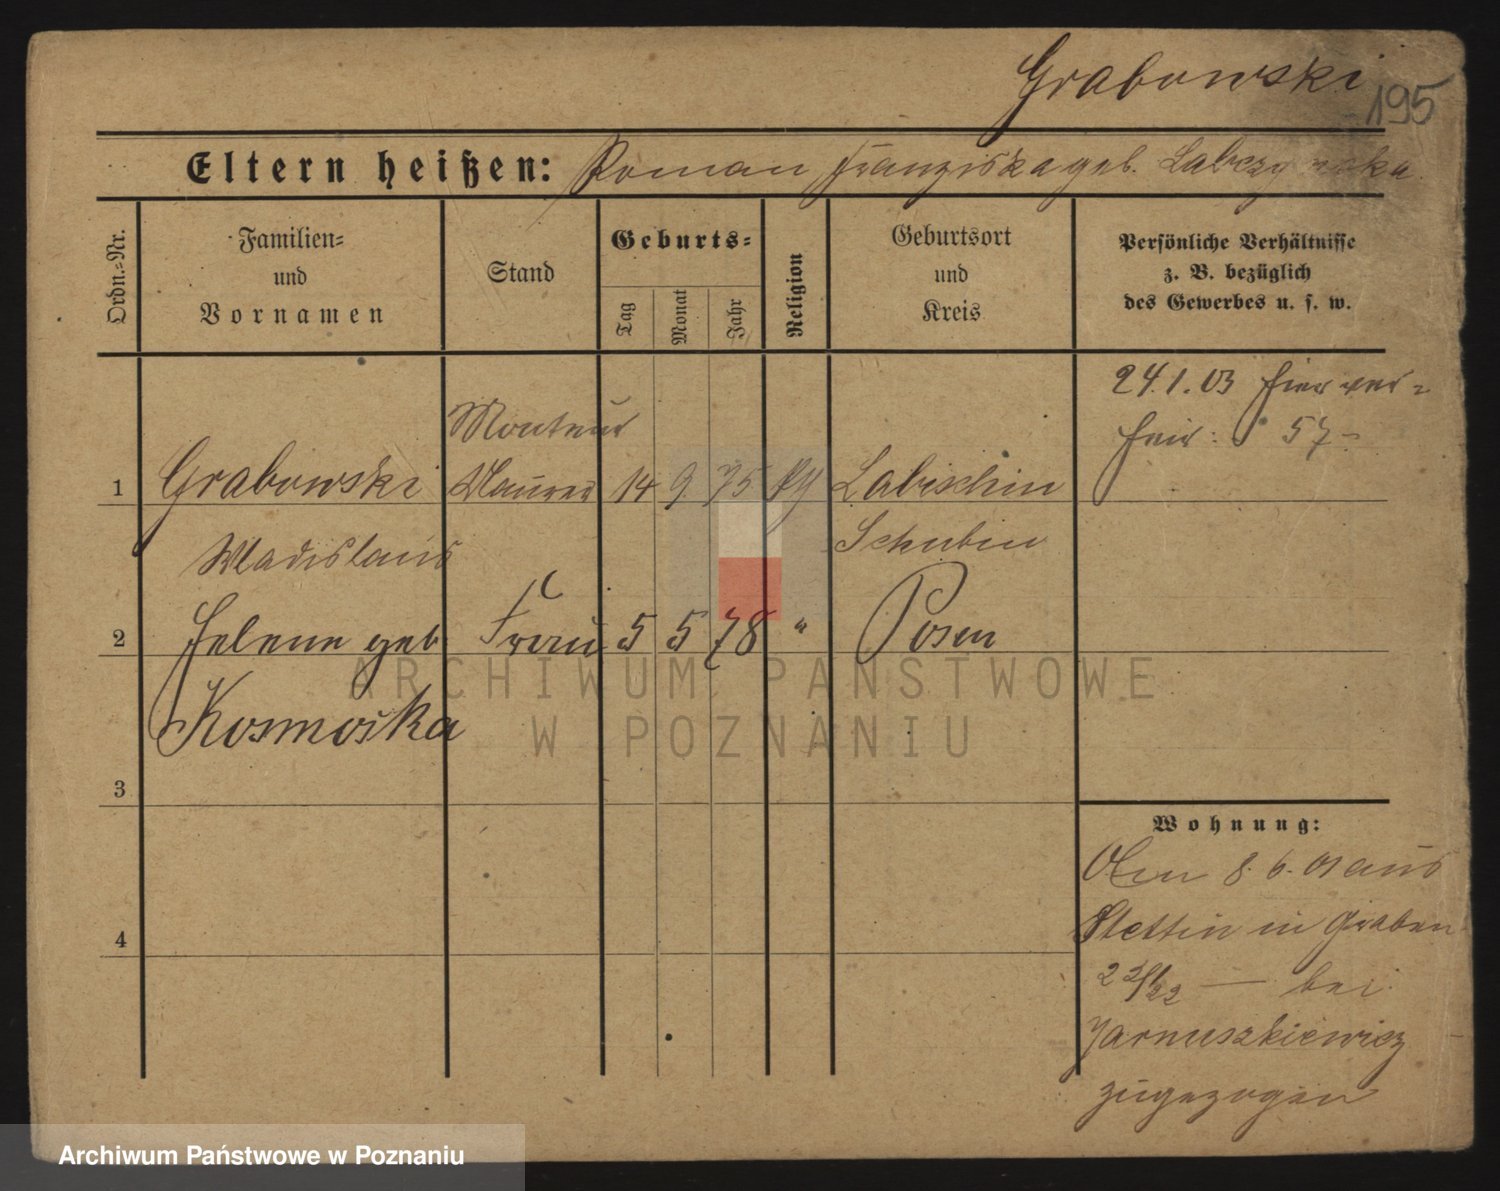 Grabowski
195
Eltern heißen: Roman Franziska geb.
Ordn.-Nr.
Familien-
und
Vornamen
Stand
Geburts-
Tag
Monat
Jahr
Religion
Geburtsort
und
Kreis
Persönliche Verhältnisse
z. B. bezüglich
des Gewerbes u. s. w.
24.1.03 hier ver-
heir: 57
Monteur
1 Grabowski Maurer 14 9 75 Labischin
Wladislaus Schubin
2 Helene geb Frau 5 5 78 " Posen
Kosmoska
3
Wohnung:
Am 8.6.01 aus
4
Stettin in Graben
22/22 — bei
Jarnuszkiewicz
zugezogen
ARCHIWUM PAŃSTWOWE
W POZNANIU
Archiwum Państwowe w Poznaniu